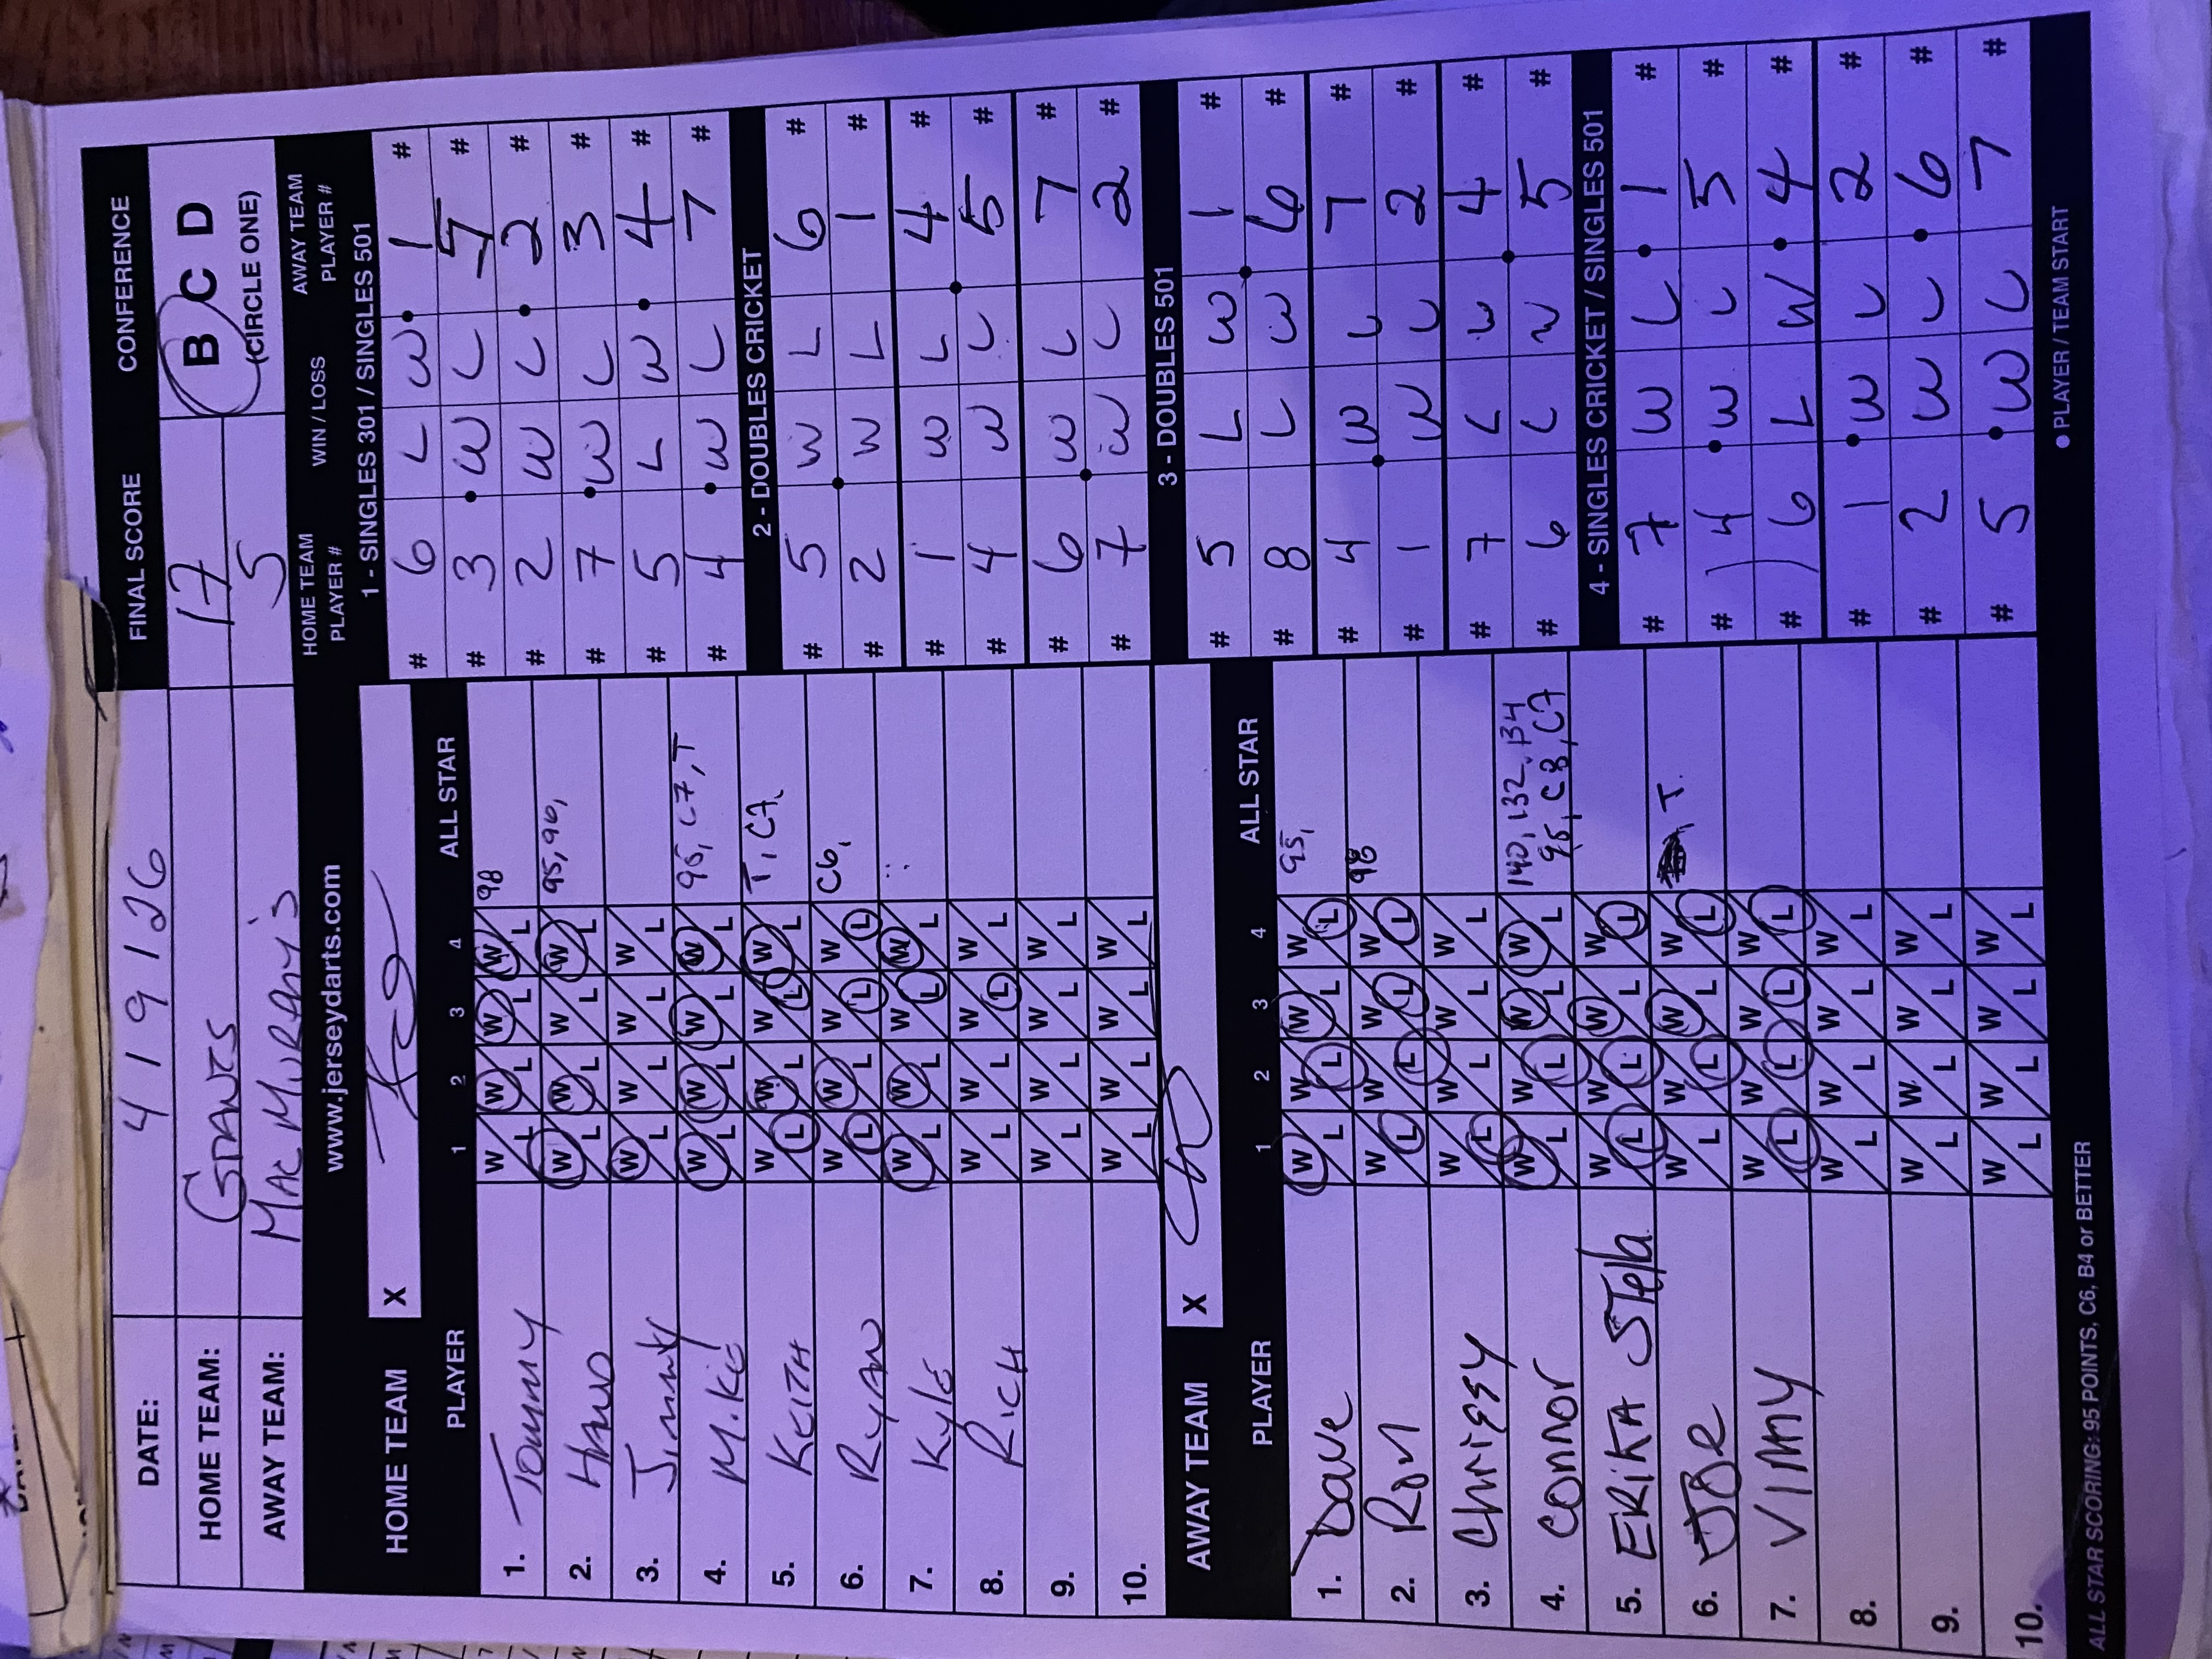 DATE: 4 19 126
FINAL SCORE CONFERENCE
HOME TEAM: GIANTS 17 B C D
AWAY TEAM: MAC MURPHY'S 5 (CIRCLE ONE)
www.jerseydarts.com
HOME TEAM X
PLAYER 1 2 3 4 ALL STAR
1. Tommy W L W L W L W L 98
2. W L W L W L W L 95, 96,
3. Jimmy W L W L W L W L
4. Mike W L W L W L W L 95, C7, T
5. KEITH W L W L W L W L T, C7,
6. RYAN W L W L W L W L C6,
7. Kyle W L W L W L W L
8. RICH W L W L W L W L
9. W L W L W L W L
10. W L W L W L W L
AWAY TEAM X
PLAYER 1 2 3 4 ALL STAR
1. Dave W L W L W L W L 95,
2. Ron W L W L W L W L 98
3. Chriggy W L W L W L W L
4. Connor W L W L W L W L 140, 132, 134
95, C8, C7
5. ERIKA Stella W L W L W L W L
6. W L W L W L W L T.
7. VINNY W L W L W L W L
8. W L W L W L W L
9. W L W L W L W L
10. W L W L W L W L
HOME TEAM PLAYER # WIN / LOSS AWAY TEAM PLAYER #
1 - SINGLES 301 / SINGLES 501
# 6 L W 1 #
# 3 W L 5 #
# 2 W L 2 #
# 7 W L 3 #
# 5 L W 4 #
# 4 W L 7 #
2 - DOUBLES CRICKET
# 5 W L 6 #
# 2 W L 1 #
# 1 W L 4 #
# 4 W L 5 #
# 6 W L 7 #
# 7 W L 2 #
3 - DOUBLES 501
# 5 L W 1 #
# 8 L W 6 #
# 4 W L 7 #
# 1 W L 2 #
# 7 L W 4 #
# 6 L W 5 #
4 - SINGLES CRICKET / SINGLES 501
# 7 W L 1 #
# 4 W L 5 #
# 6 L W 4 #
# 1 W L 2 #
# 2 W L 6 #
# 5 W L 7 #
● PLAYER / TEAM START
ALL STAR SCORING: 95 POINTS, C6, B4 or BETTER